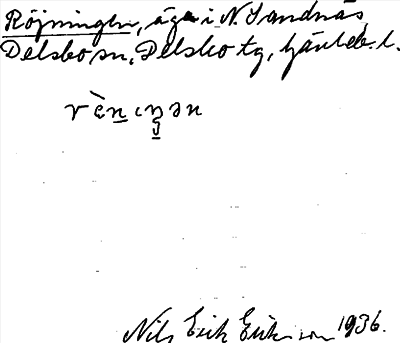 Röjningen, äga i N. Sandnäs,
Delsbo sn, Delsbo tg, Gävleb. l.
rὲn̲ιŋ̲ən
Nils Erik Eriksson 1936.